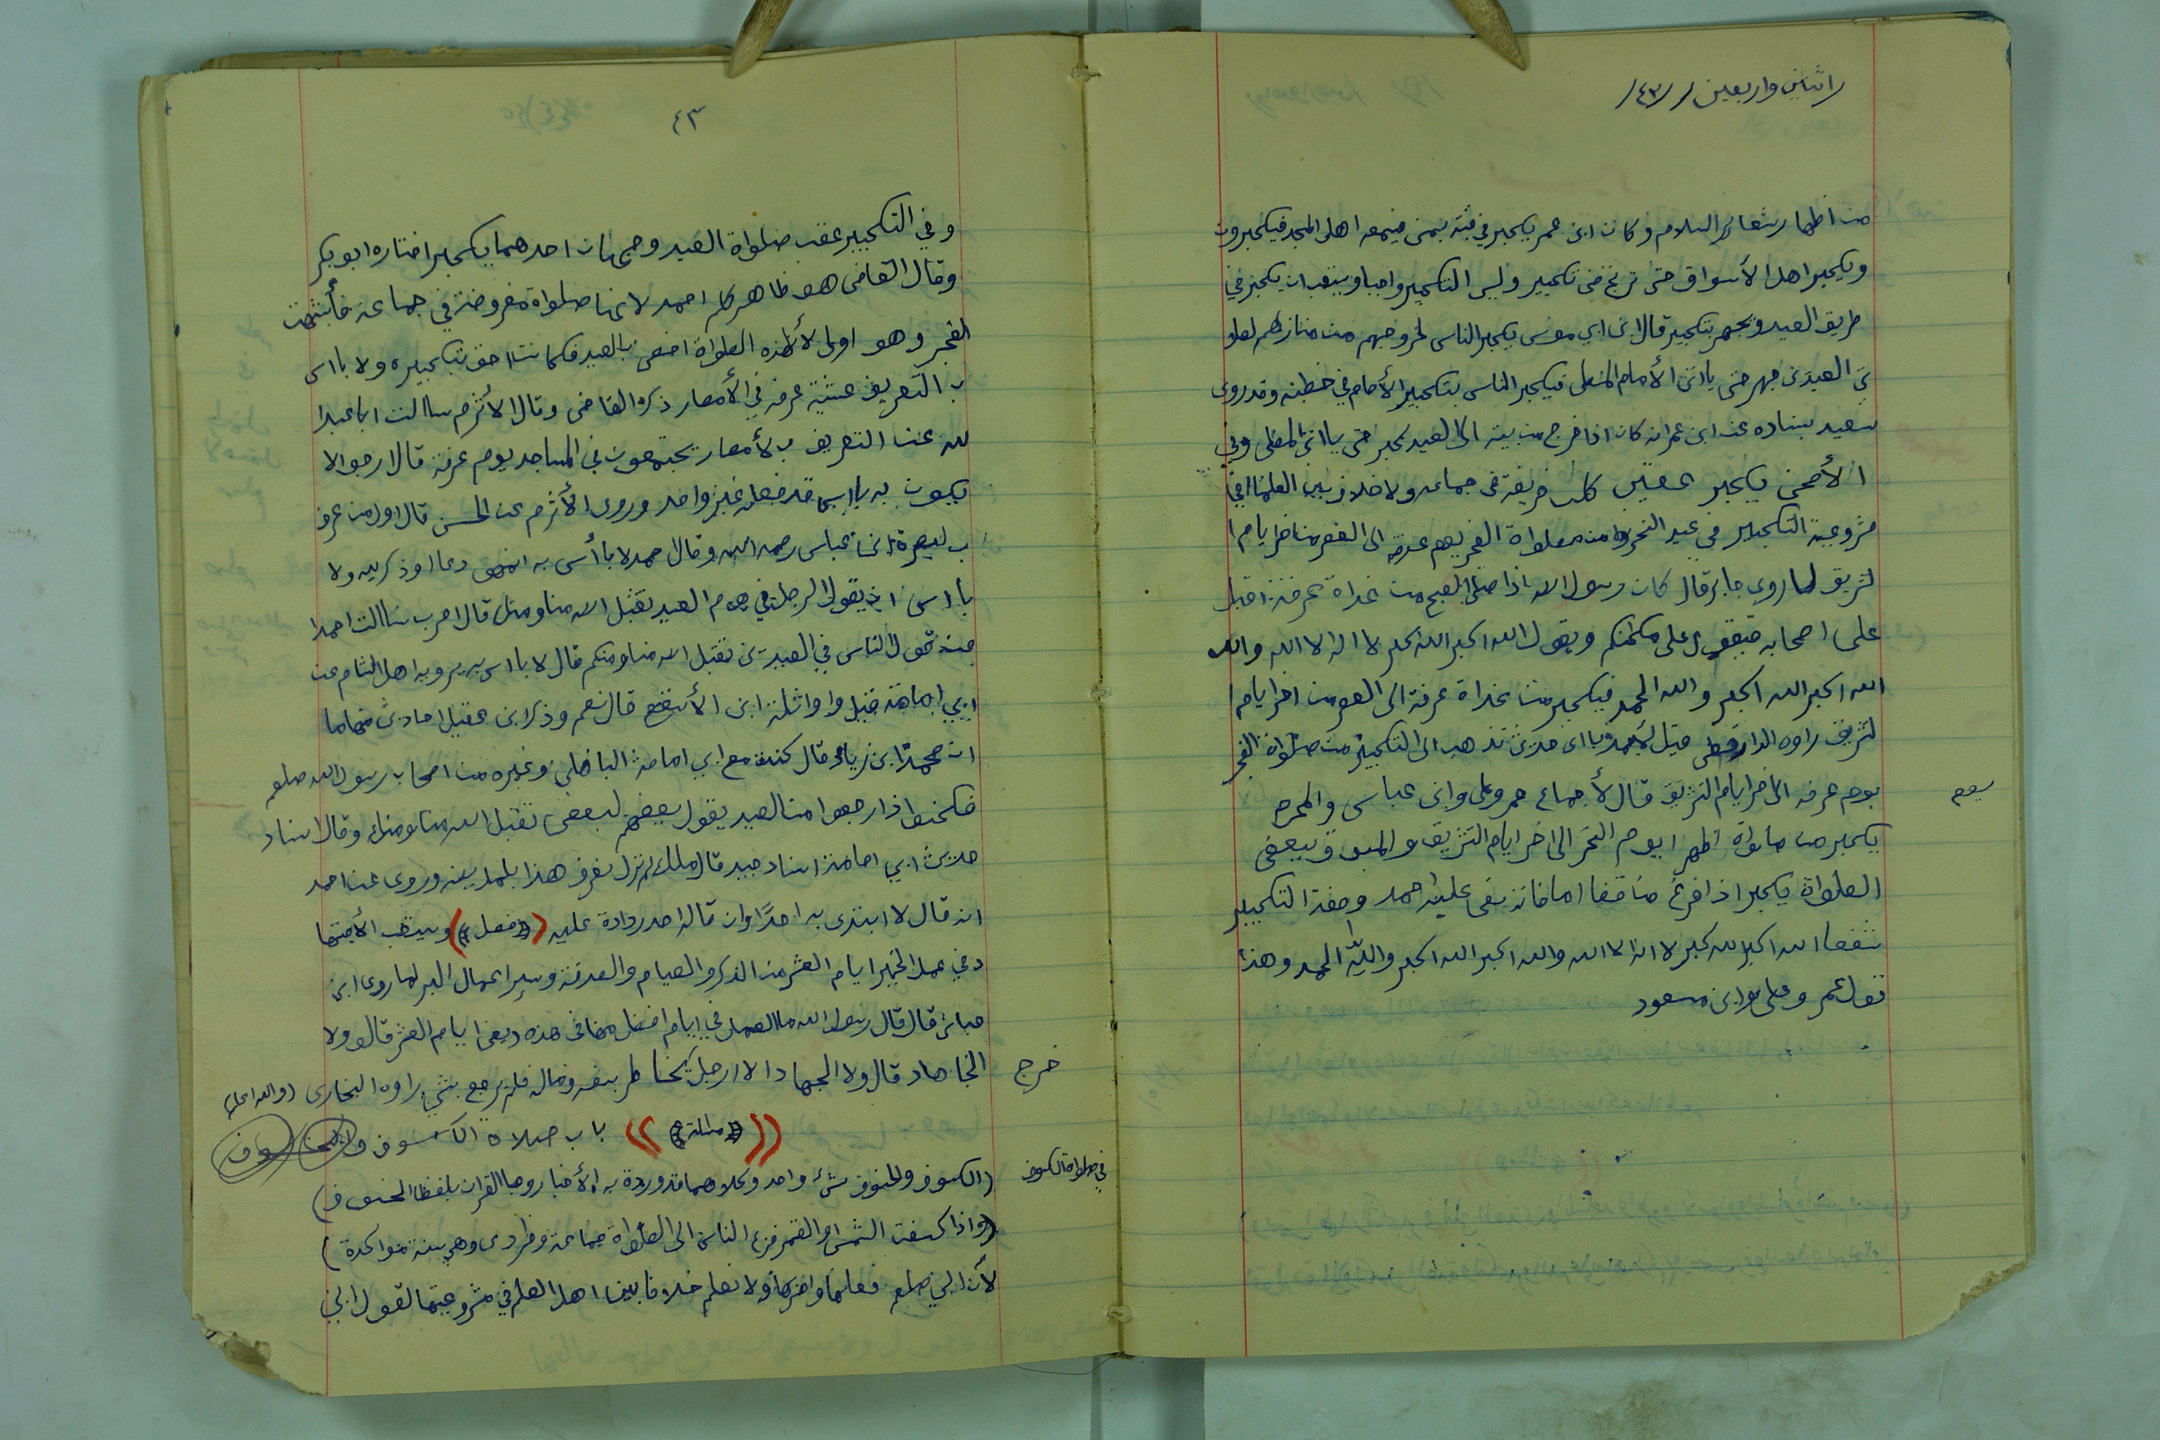 /اثناین واربعین/ /٤٣/
من اظهار شعائر السلام وكان ابن عمر يكبر في قبته بمنى فيسمعه اهل المجد فيكبرون
ويكبر اهل الأسواق حتى ترتج منى تكبير وليس التكبير واجبا ويستحب ان يكبر في
طريق العيد ويجهر بتكبير قال ابن ابي موسى يكبر الناس لخروجهم من منازلهم لصلو
تي العيدين جهر حتى يااتى الأمام المصلى فيكبر الناس بتكبير الأمام في خطبته وقد روى
سعيد بسناده عن ابن عمر انه كان اذا خرج من بيته الا العيد كبر حتى يااتى المصلى وفي
الأضحى يكبر عقيب كل فريضة في جماعه ولا خلاف بين العلماافي
مشروعية التكبير في عيد النحر من صلواة الفجر يوم عرفه الى العصر من اخر ايام ا
لتشريق لما روى جابر قال كان رسول الله اذا صلى الصبح من غداة عرفة اقبل
على اصحابه فيقول على مكانكم ويقول الله اكبر الله اكبر لا اله الا الله والله
الله اكبر الله اكبر والله الحمد فيكبر من غداة عرفة الى العصر من اخر ايام ا
لتشريق راوه الدارقطى قيل لأحمد باى حديث تذهب الى التكبير من صلواة الفجر
يوم عرفه الى اخر ايام التشريق قال لأجماع عمر وعلى وابن عباس والمحرم
يوم
يكبر من صلواة اظهر ايوم النحر الى اخر ايام التشريق والمسبوق ببعض
الصلواة يكبر اذا فرغ من قضا امافاته نص عليه احمد وصفة التكبير
شفعا الله اكبر الله كبر لا اله الا الله والله اكبر الله اكبر والله الحمد وهذا
قول عمر وعلى وابن مسعود
٤٣
وفي التكبير عقب صلواة العيد وجهان احدهما يكبر اختاره ابو بكر
وقال القاضى هو ظاهر كلم احمد لانها صلواة مفروضة في جماعه فأشبهت
الفجر وهو اولى لأن هذه الصلواة اخص بالعيد فكانت احق بتكبيره ولا بااس
ب التعريف عشية عرفه في الأمصار ذكره القاضى وقال الأثرم ساالت ابا عبدا
لله عن التعريف ب لأمصار يجتمعون في المساجد يوم عرفة قال ارجو الا
يكون به بااس قد فعله غير واحد وروى الأثرم عن الحسن قال اول من عرف
ب لبصرة ابن عباس رحمه الله وقال احمد لا بأاس به انما هو دعاا وذكر لله ولا
بااس ان يقول الرجل في يوم العيد تقبل الله منا ومنك قال احرب ساالت احمد ا
عن قول الناس في العيدين تقبل الله منا ومنكم قال لا بااس به يرويه اهل الشام عن
ابي امامة قيل واواثلة ابن الأسقع قال نعم وذكر ابن عقيل احاديث منها ما
ان محمد ابن زياد قال كنت مع ابي امامة الباهلي وغيره من اصحاب رسول الله صلعم
فكنوا اذا رجعوا من العيد يقول بعضهم لبعض تقبل الله منا ومنك وقال اسناد
حديث ابي امامة اسناد جيد قال ملك لم نزل نعرف هذا بلمدينه وروى عن احمد
انه قال لا ابتدى به احدًا وان قاله احد رددة عليه ((فصل)) ويستحب الأجتها
د في عمل الخير ايام العشر من الذكر والصيام والصدقة وسير اعمال البر لما روى ابن
عباس قال قال رسول الله ما العمل في ايام افضل منها في هذه ديعني ايام العشر قالو ولا
الجاهاد قال ولا الجهاد الا ارجل يخاطر بنفسه وماله فلم يرجع بشي راوه البخارى (والله اعلم)
خرج
((مسالة)) باب صلاة الكسوف والخسوف
(الكسوف ولخسوف شئ واحد وكلاهما قد وردة به الأخبار وجا القران بلفظ الخسوف)
في صلواة الكسوف
(واذا كسفت الشمس او القمر فزع الناس الى الصلواة جماعة وفردى وهي سنة مؤكدة)
لأن النبي صلعم فعلها وامر بها ولا نعلم خلافا بين اهل العلم في مشروعيتها لقول ابن